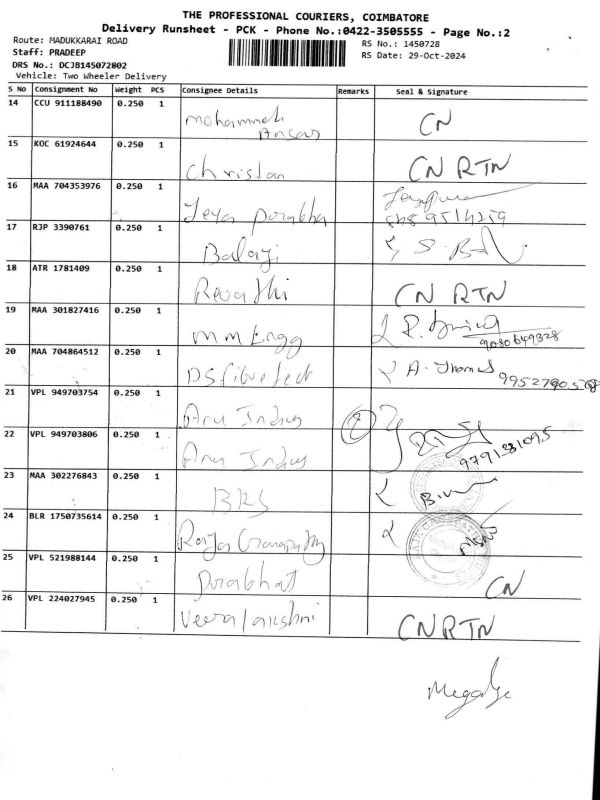 THE PROFESSIONAL COURIERS, COIMBATORE
Delivery Runsheet - PCK - Phone No.:0422-3505555 - Page No.:2
Route: MADUKKARAI ROAD
RS No.: 1450728
Staff: PRADEEP
RS Date: 29-Oct-2024
DRS No.: DCJB145072802
Vehicle: Two Wheeler Delivery
S No Consignment No Weight PCS Consignee Details Remarks Seal & Signature
14 CCU 911188490 0.250 1
mohammed CN
15 KOC 61924644 0.250 1
Christan CN RTN
16 MAA 704353976 0.250 1
Jeya Prabha
17 RJP 3390761 0.250 1
Balaji
18 ATR 1781409 0.250 1
Revathi CN RTN
19 MAA 301827416 0.250 1
MM Engg
20 MAA 704864512 0.250 1
A. Thomas
21 VPL 949703754 0.250 1
Aru Indus
22 VPL 949703806 0.250 1
Aru Indus 9791381095
23 MAA 302276843 0.250 1
BRS
24 BLR 1750735614 0.250 1
Raja Ganapathy
25 VPL 521988144 0.250 1
Prabhat CN
26 VPL 224027945 0.250 1
Veeralakshmi CN RTN